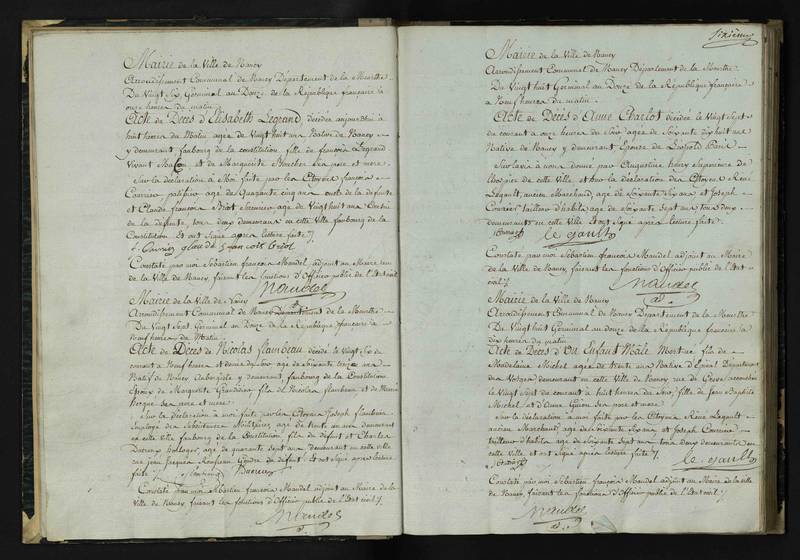 Mairie de la Ville de Nancy
Arrondissement Communal de Nancy Département de la Meurthe
Du Vingt Six Germinal an Douze de la République française à
onze heures du matin
Acte de Décès d'Elisabeth Legrand décédée aujourd'hui à
huit heures du Matin agée de Vingt huit ans Native de Nancy
y demeurant faubourg de la constitution fille de françois Legrand
Vivant Maçon et de Marguerite ses père et mere
Sur la déclaration à Moi faite par les Citoyens françois
agé de Quarante cinq ans oncle de la défunte
et Claude françois agé de Vingt huit ans Cousin
de la défunte, tous deux demeurans en cette Ville faubourg de la
Constitution Et ont Signé après lecture faite
Constaté par moi Sébastien françois Mandel adjoint au Maire
de la Ville de Nancy, faisant les fonctions d'Officier public de l'Etat civil
Mandel
Mairie de la Ville de Nancy
Arrondissement Communal de Nancy Département de la Meurthe
Du Vingt Sept Germinal an Douze de la République française à
Neuf heures du Matin
Acte de Décès de Nicolas flambeau décédé le Vingt Six du
courant à Neuf heures et demie du Soir agé de Soixante treize ans
Natif de Nancy y demeurant, faubourg de la Constitution
Epoux de Marguerite fils de Nicolas flambeau et de Marie
ses père et mere
Sur la déclaration à moi faite par les Citoyens Joseph flambeau
Employé des Subsistances Militaires, agé de trente un ans demeurant
en cette ville faubourg de la Constitution fils du défunt et Charles
horloger, agé de quarante sept ans demeurant en cette ville
rue Jean Jacques Rousseau Gendre du défunt. Et ont Signé après lecture
faite
Constaté par moi Sébastien françois Mandel adjoint au Maire de la
Ville de Nancy, faisant les fonctions d'Officier public de l'Etat civil
Mandel
Sixième
Mairie de la Ville de Nancy
Arrondissement Communal de Nancy Département de la Meurthe
Du Vingt huit Germinal an Douze de la République française
à Neuf heures du matin
Acte de Décès d'Anne Charlot décédée le Vingt Sept
du courant à onze heures du Soir agée de Soixante dix huit ans
Native de Nancy y demeurant Epouse de Léopold
Sur l'avis à nous donné par Augustine henry Supérieure de
l'hospice de cette Ville et Sur la déclaration des Citoyens René
Legault, ancien Marchand, agé de Soixante Six ans et Joseph
tailleur d'habits, agé de Soixante Sept ans tous deux
demeurants en cette Ville Et ont Signé après lecture faite
le gault
Constaté par moi Sébastien françois Mandel adjoint au Maire
de la Ville de Nancy, faisant les fonctions d'Officier public de l'Etat
civil
Mandel
Mairie de la Ville de Nancy
Arrondissement Communal de Nancy Département de la Meurthe
Du Vingt huit Germinal an douze de la République française à
dix heures du matin
Acte de Décès d'Un Enfant Mâle Mort né fils de
Madelaine Michel agée de trente un Native d'Epinal Département
des Vosges demeurant en cette Ville de Nancy rue de accouchée
le Vingt Sept du courant à huit heures du Soir, fille de Jean Baptiste
Michel et d'Anne ses père et mere
Sur la déclaration à moi faite par les Citoyens René Legault
ancien Marchand agé de Soixante Six ans et Joseph
tailleur d'habits agé de Soixante Sept ans tous deux demeurants en
cette Ville Et ont Signé après lecture faite
le gault
Constaté par moi Sébastien françois Mandel adjoint au Maire de la ville
de Nancy, faisant les fonctions d'Officier public de l'Etat civil
Mandel